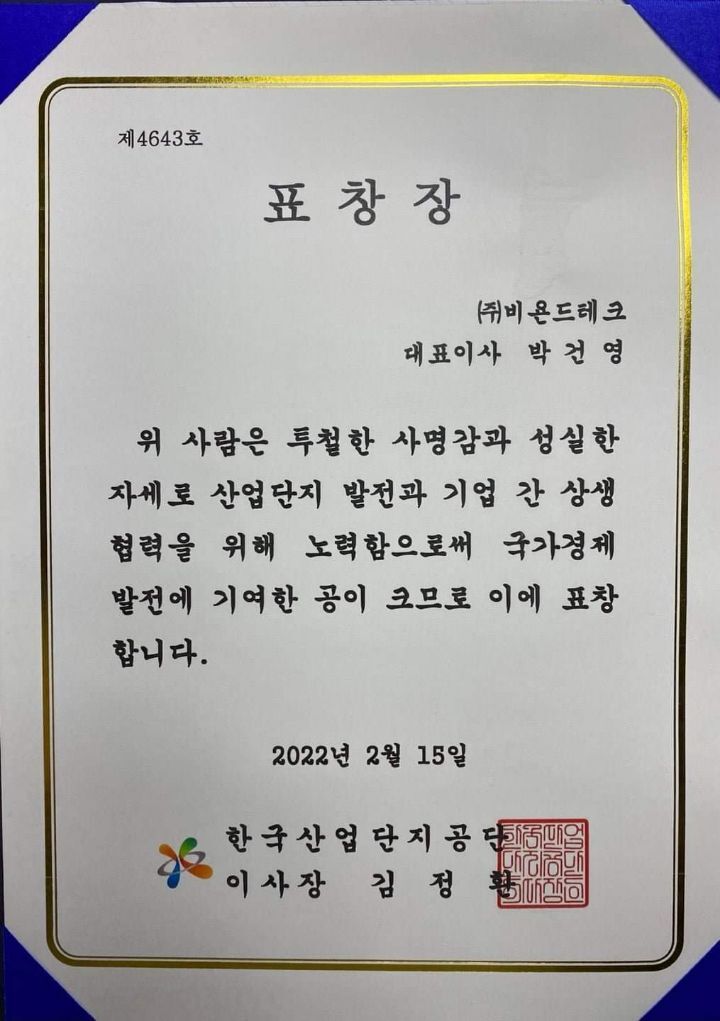 제4643호
표 창 장
㈜비욘드테크
대표이사 박 건 영
위 사람은 투철한 사명감과 성실한
자세로 산업단지 발전과 기업 간 상생
협력을 위해 노력함으로써 국가경제
발전에 기여한 공이 크므로 이에 표창
합니다.
2022년 2월 15일
한국산업단지공단
이사장 김 정 환